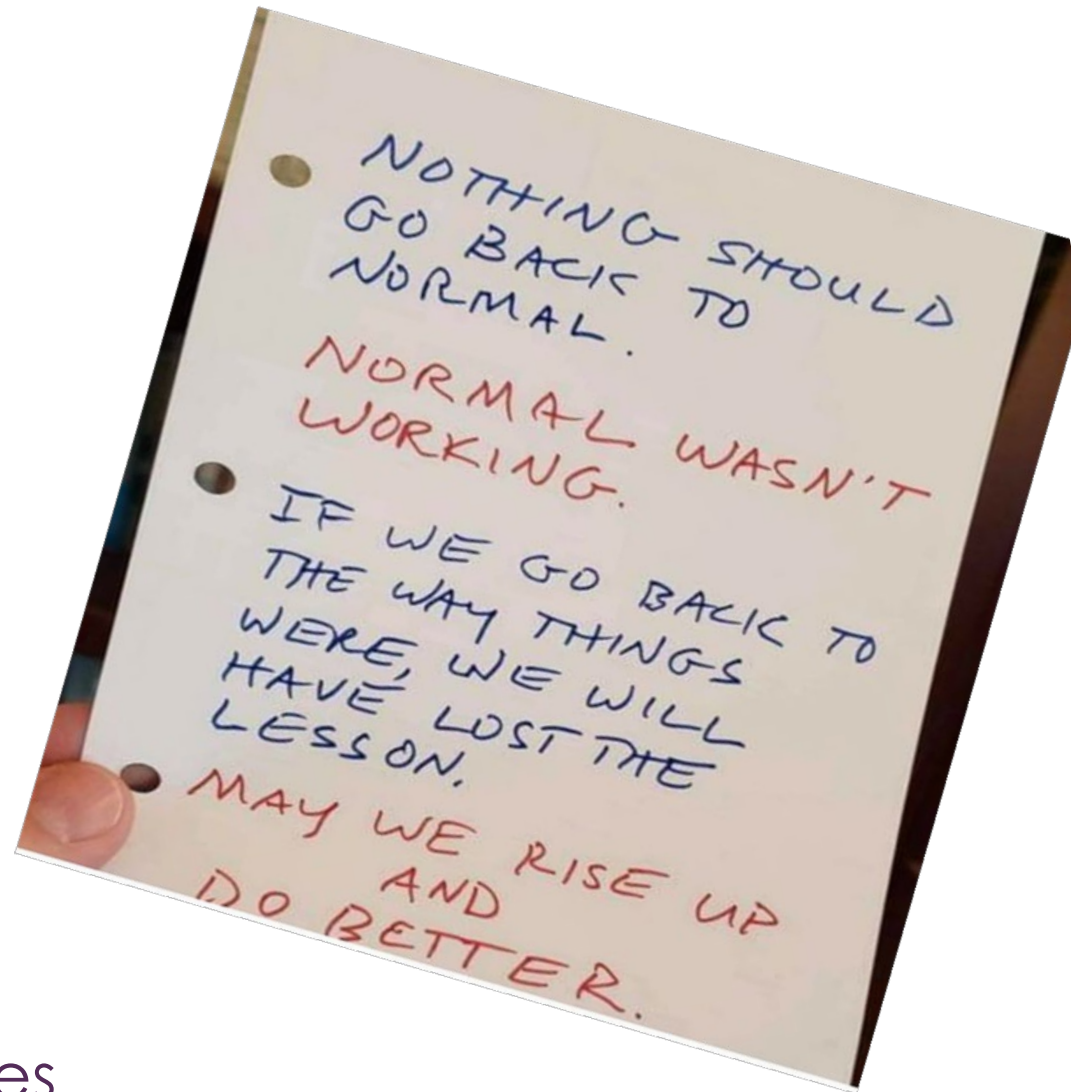 NOTHING SHOULD
GO BACK TO
NORMAL.
NORMAL WASN'T
WORKING.
IF WE GO BACK TO
THE WAY THINGS
WERE, WE WILL
HAVE LOST THE
LESSON.
MAY WE RISE UP
AND
DO BETTER.
es